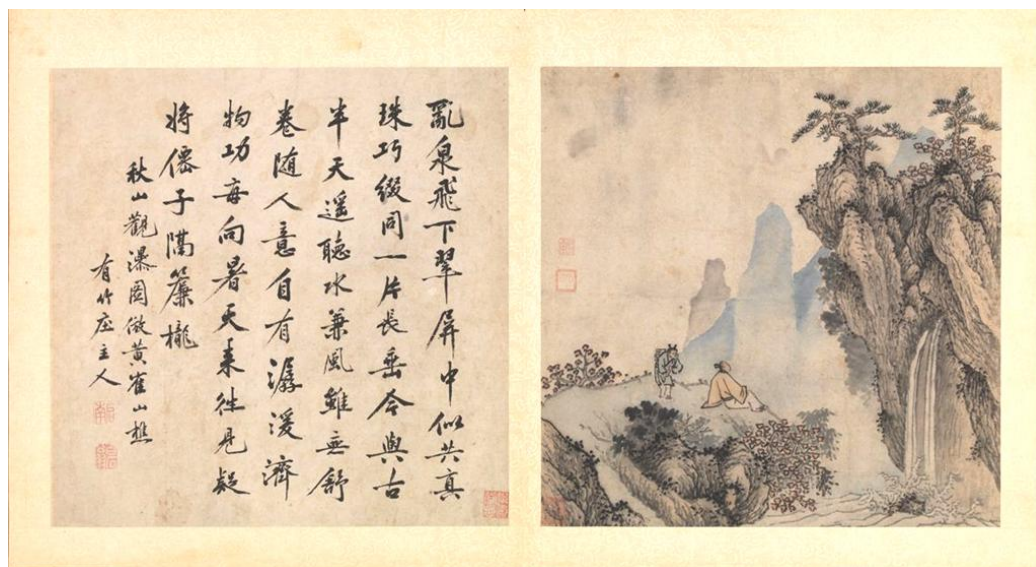 亂泉飛下翠屏中似共真
珠巧綴同一片長垂今與古
半天遥聴水兼風雖無舒
卷随人意自有潺湲濟
物功每向暑天来往見疑
将僊子隔簾櫳
秋山觀瀑圖倣黄隺山樵
有竹庄主人